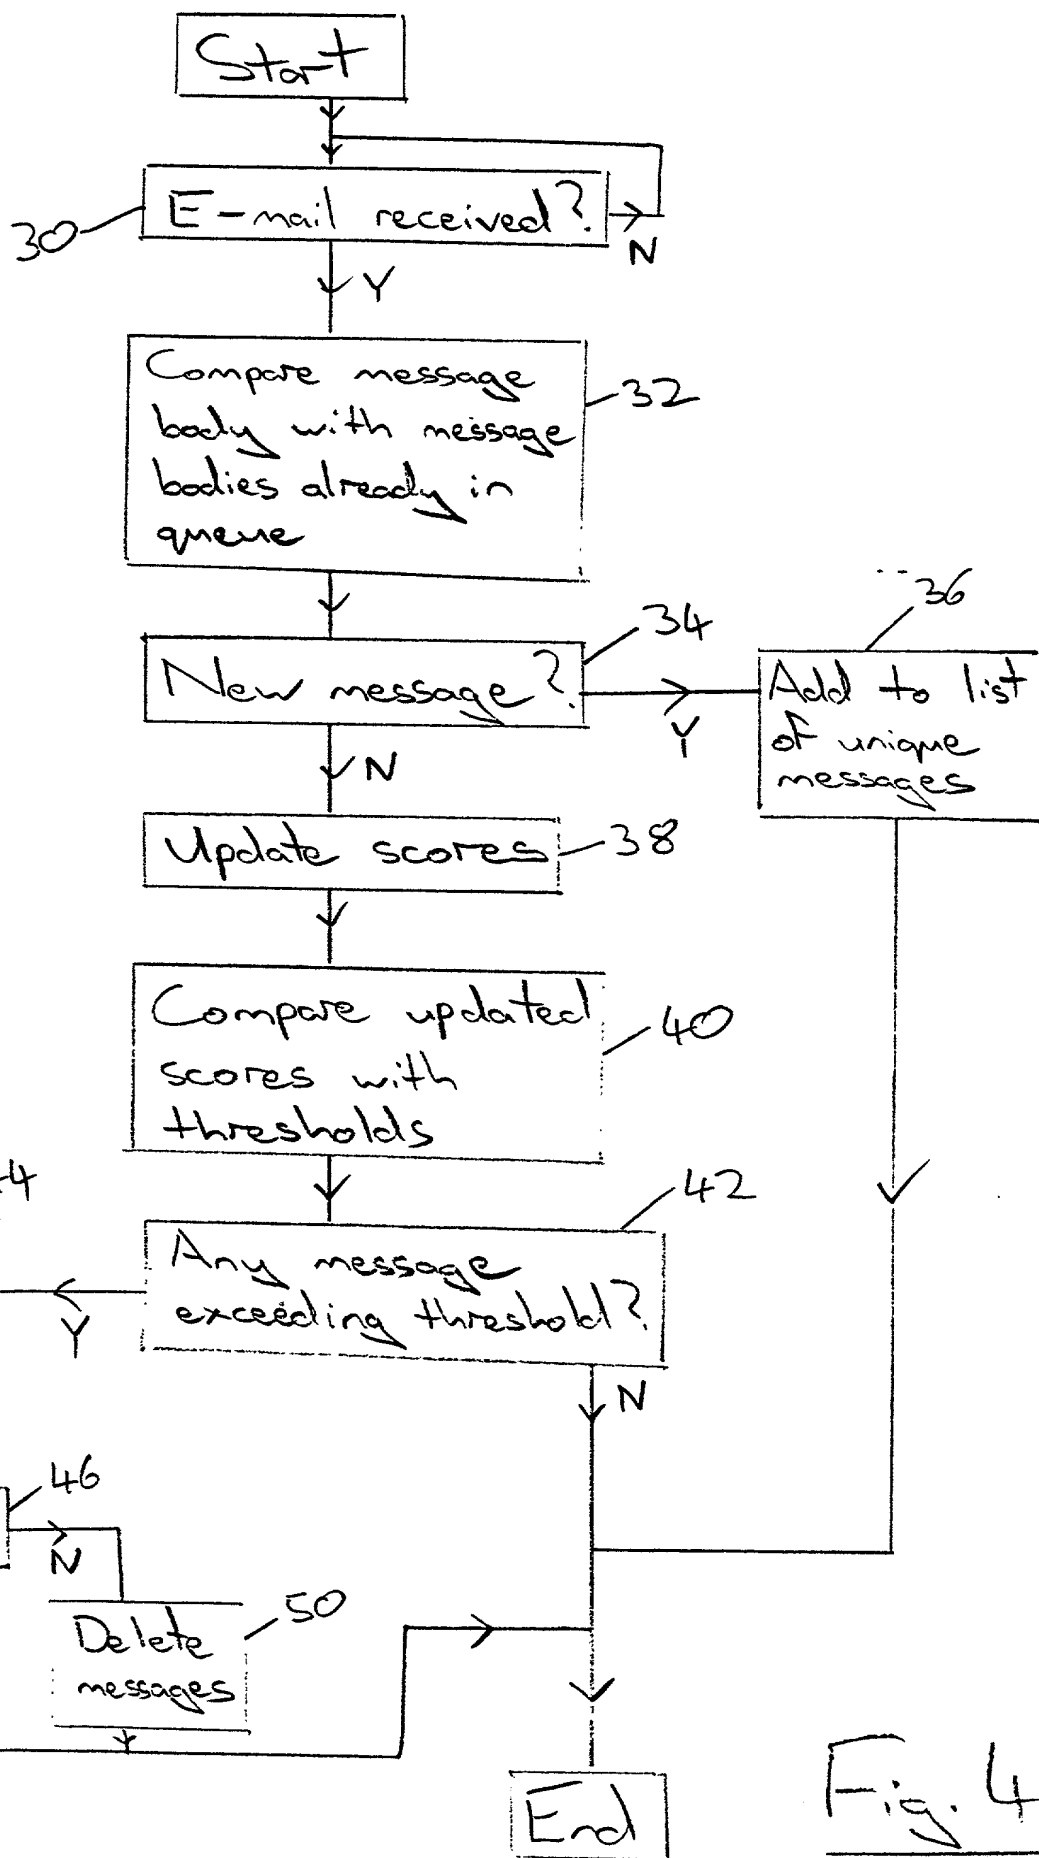 Start
30
E-mail received?
N
Y
Compare message
body with message
bodies already in
queue
32
34
New message?
Y
36
Add to list
of unique
messages
N
Update scores
38
Compare updated
scores with
thresholds
40
42
Any message
exceeding threshold?
Y
N
46
N
50
Delete
messages
End
Fig. 4